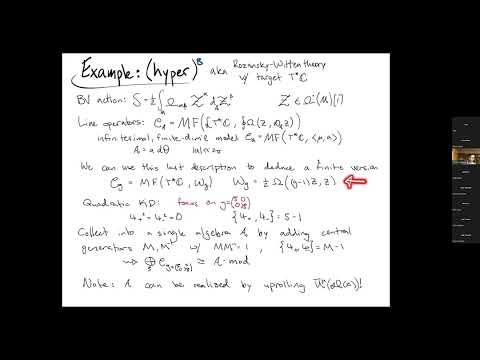 Example: (hyper)^B aka Rozansky-Witten theory
w/ target T*ℂ
BV action: S = ½∫ Ω_αβ Z^α d_A Z^β Z ∈ Ω^•(M)[1]
Line operators: C_A = MF(£T*ℂ, ∮Ω(Z, ∂_A Z))
infinitesimal, finite-dim'l model C_A = MF(T*ℂ, ⟨μ, a⟩)
A = a dθ |a| << 2π
We can use this last description to deduce a finite version
C_g = MF(T*ℂ, W_g) W_g = ½ Ω((g-1)Z, Z)
Quadratic KD: focus on g =
ψ₊² = ψ₋² = 0 {ψ₊, ψ₋} = s - 1
Collect into a single algebra A by adding central
generators M, M⁻¹ w/ MM⁻¹ = 1, {ψ₊, ψ₋} = M - 1
≃ A-mod
Note: A can be realized by uprolling